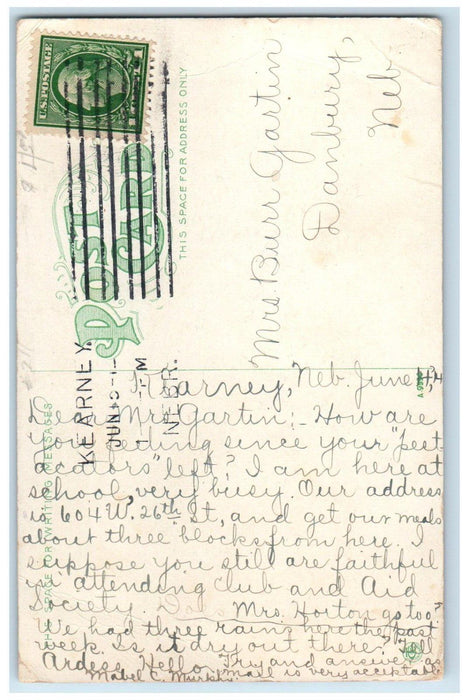 U.S. POSTAGE
POST
CARD
THIS SPACE FOR ADDRESS ONLY
KEARNEY.
JUN
1 M
NEBR.
Mrs Burr Gartin
Danbury,
Neb
THIS SPACE FOR WRITING MESSAGES
Kearney, Neb. June 4,
Dear Mrs Gartin:- How are
you feeling since your "pest
started" left? I am here at
school, very busy. Our address
is 604 W. 26th St, and get our meals
about three blocks from here. I
suppose you still are faithful
in attending club and Aid
Society. Does Mrs. Horton go too?
We had three rains here the past
week. Is it dry out there? Tell
Ardess Hello. Try and answer as
Mabel C. Murphy mail is very acceptable